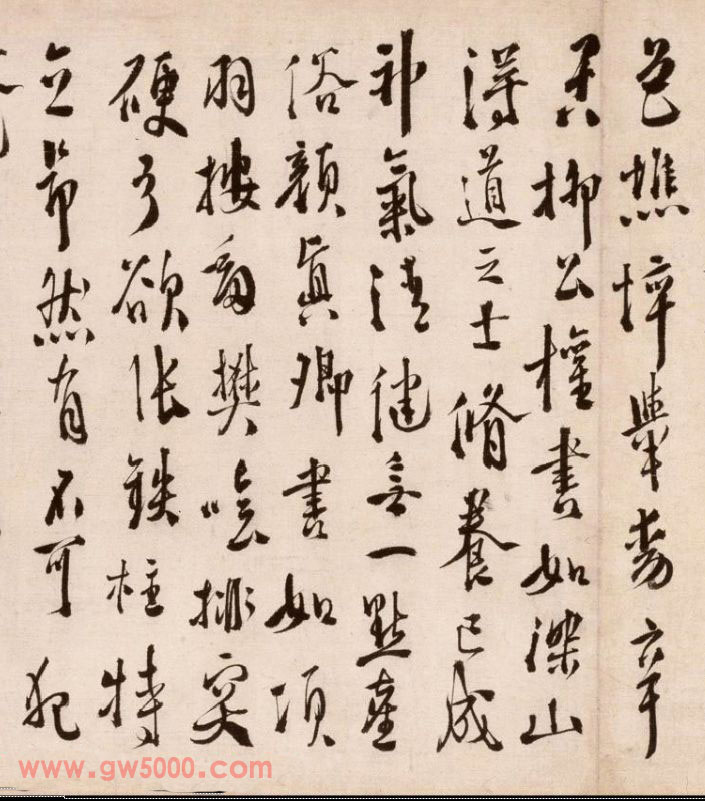 色憔悴舉動辛
柳公權書如深山
得道之士脩養已成
神氣清健無一點塵
俗顏眞卿書如項
羽樊噲排突
硬弓欲張鐵柱特
立昂然有不可犯
www.gw5000.com